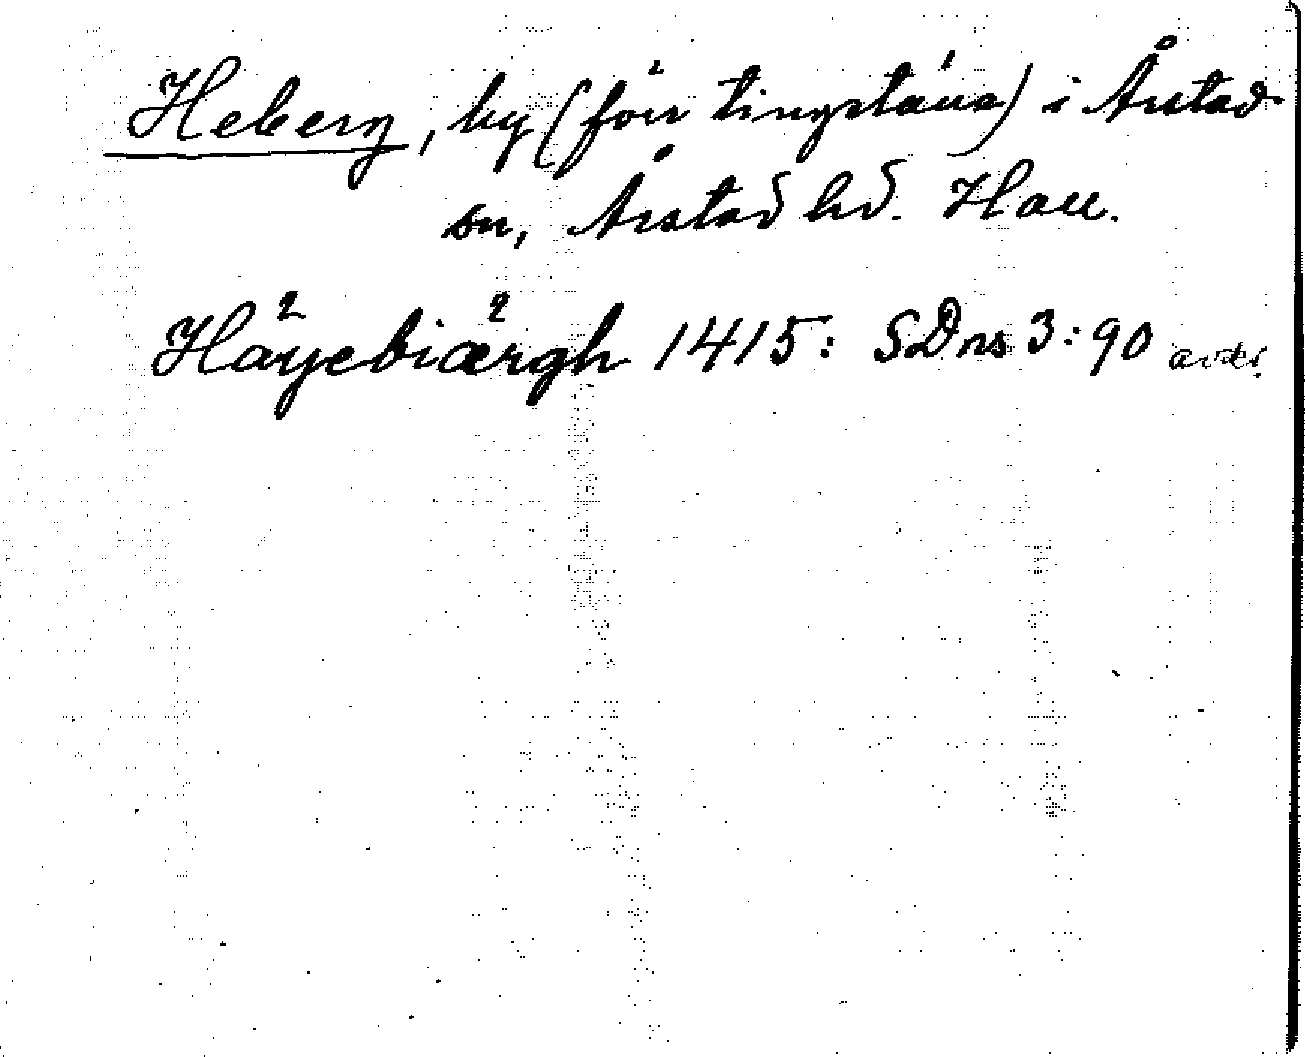 Heberg, by (förr tingställe) i Årstad
sn, Årstad hd. Hall.
Häyebiærgh 1415: SDns 3:90 avskr.